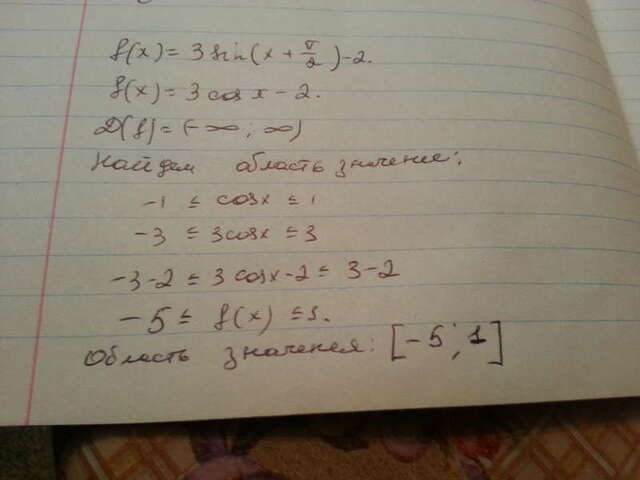 f(x) = 3 sin(x + π/2) - 2.
f(x) = 3 cos x - 2.
D(f) = (-∞; ∞)
Найдем область значение:
-1 ≤ cosx ≤ 1
-3 ≤ 3cosx ≤ 3
-3-2 ≤ 3 cosx-2 ≤ 3-2
-5 ≤ f(x) ≤ 1.
Область значения: [-5; 1]